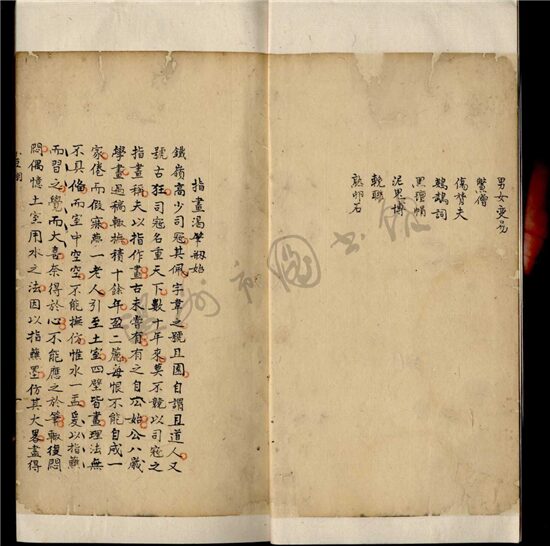 男女變易
僧
夫
詞
黑
泥鬼博
輓聯
明石
指畫渴筆剏始
鐵嶺高少司寇其佩字韋之號且園自謂且道人又
號古狂司寇名重天下數十年來莫不競以司寇之
指畫稱夫以指作畫古未嘗有有之自公始公八歲
學畫遇稿輒撫積十餘年盈二簏每恨不能自成一
家倦而假寐夢一老人引至土室四壁皆畫理法無
不具備而室中空空不能撫仿惟水一盂爰以指蘸
而習之覺而大喜奈得於心不能應之於筆輒復悶
悶偶憶土室用水之法因以指蘸墨仿其大畧盡得
溫州市圖書館